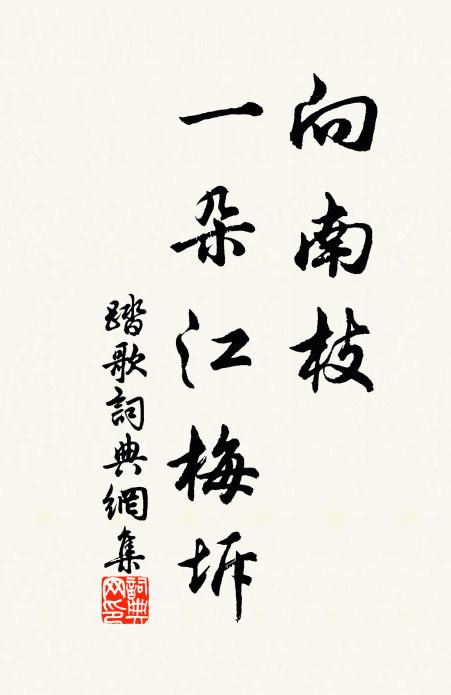 向南枝
一朵江梅坼
踏歌詞典網集
詞典
网印